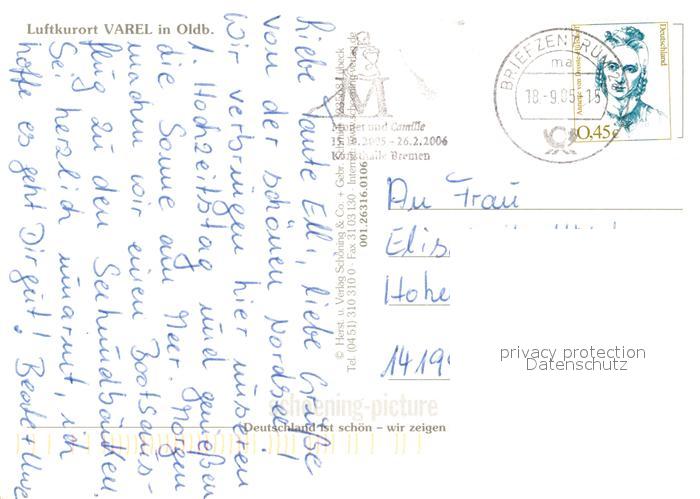 Luftkurort VAREL in Oldb.
Liebe Tante Elli, liebe Grüße
von der schönen Nordsee!
Wir verbringen hier unseren
1. Hochzeitstag und genießen
die Sonne am Meer. Morgen
machen wir einen Bootsaus-
flug zu den Seehundbänken.
Sei herzlich umarmt, ich
hoffe es geht Dir gut! Beate + Uwe
© Herst. u. Verlag Schöning & Co. + Gebr.
Tel. (04 51) 310 310 0 · Fax 31 03 130
001.26316.0106
Monet und Camille
15.10.2005 - 26.2.2006
Kunsthalle Bremen
BRIEFZENTRUM
ma
18.-9.05-18
Deutschland
0,45€
An Frau
Elis
Hohe
1419
privacy protection
Datenschutz
schoening-picture
Deutschland ist schön – wir zeigen